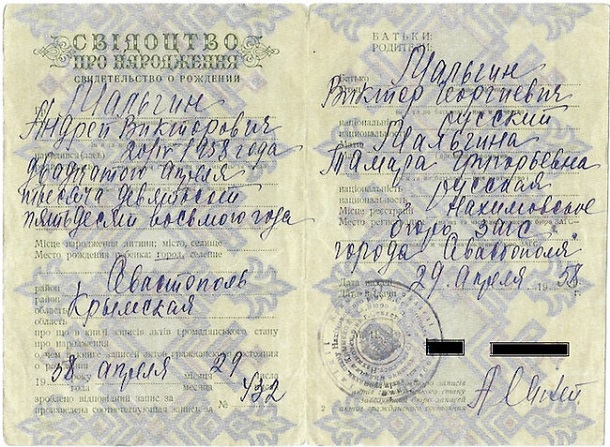 СВІДОЦТВО
ПРО НАРОДЖЕННЯ
СВИДЕТЕЛЬСТВО О РОЖДЕНИИ
Мальгин
Андрей Викторович
20/IV 1958 года
двадцатого апреля
тысяча девятьсот
пятьдесят восьмого года
Місце народження дитини: місто, селище
Место рождения ребенка: город, селение
район Севастополь
область Крымская
область
про що в книзі записів актів громадянського стану
про народження
о чем в книге записей актов гражданского состояния
о рождении
19 58 року апреля місяця 29 числа
года месяца числа
зроблено відповідний запис за № 432
произведена соответствующая запись за
БАТЬКИ:
РОДИТЕЛИ:
Батько Мальгин
Виктор Георгиевич
національність русский
национальность
Мати Мальгина
Тамара Григорьевна
національність русская
национальность
Місце реєстрації Нахимовское
Место
бюро ЗАГС
города Севастополя
Дата 29 апреля 1958 р.
Дата